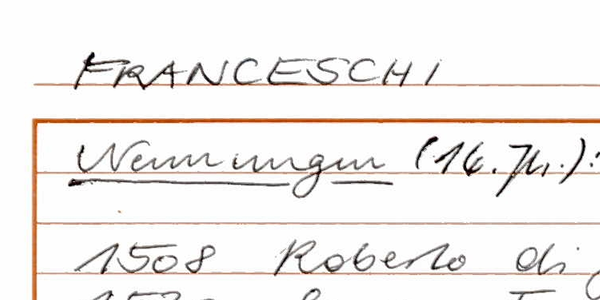 FRANCESCHI
Nennungen (16. Jh.):
1508 Roberto di